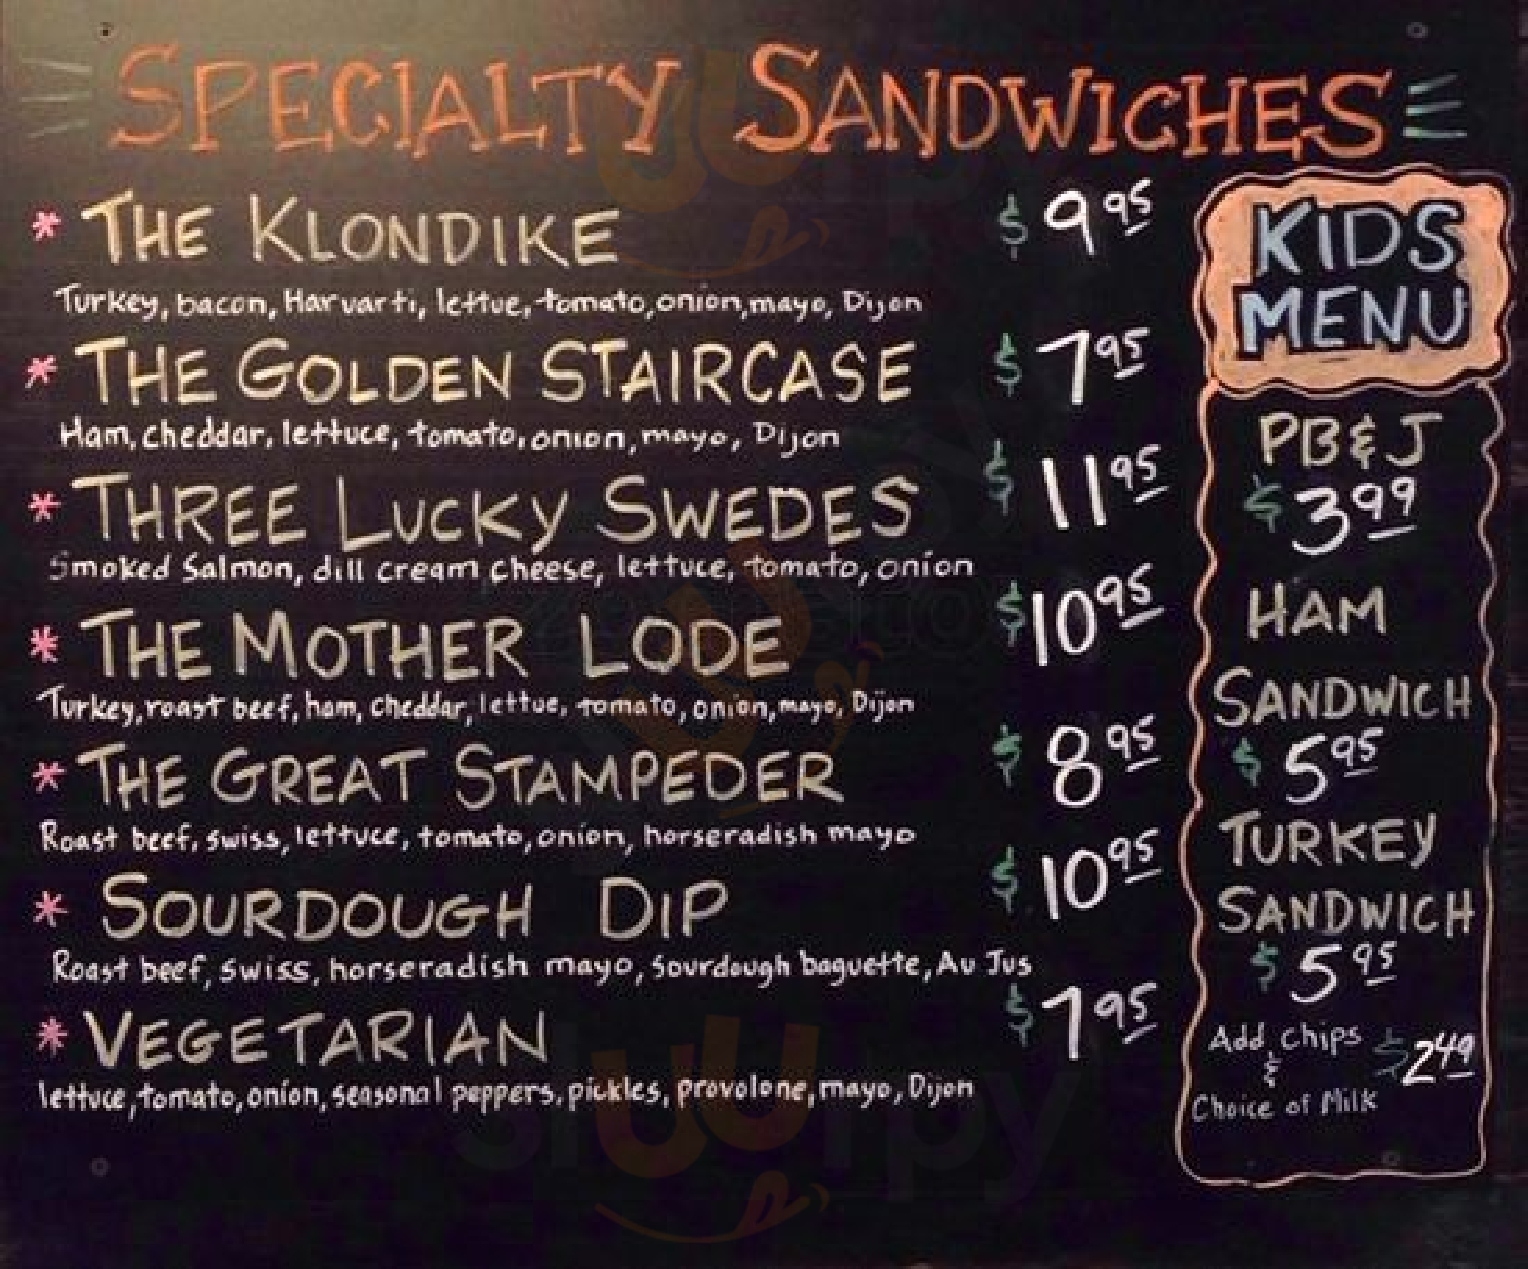 SPECIALTY SANDWICHES
* THE KLONDIKE $9.95
Turkey, bacon, Harvarti, lettue, tomato, onion, mayo, Dijon
* THE GOLDEN STAIRCASE $7.95
Ham, cheddar, lettuce, tomato, onion, mayo, Dijon
* THREE LUCKY SWEDES $11.95
Smoked Salmon, dill cream cheese, lettuce, tomato, onion
* THE MOTHER LODE $10.95
Turkey, roast beef, ham, cheddar, lettue, tomato, onion, mayo, Dijon
* THE GREAT STAMPEDER $8.95
Roast beef, swiss, lettuce, tomato, onion, horseradish mayo
* SOURDOUGH DIP $10.95
Roast beef, swiss, horseradish mayo, sourdough baguette, Au Jus
* VEGETARIAN $7.95
lettuce, tomato, onion, seasonal peppers, pickles, provolone, mayo, Dijon
KIDS
MENU
PB & J
$3.99
HAM
SANDWICH
$5.95
TURKEY
SANDWICH
$5.95
Add chips $2.49
&
Choice of Milk
sluurpy